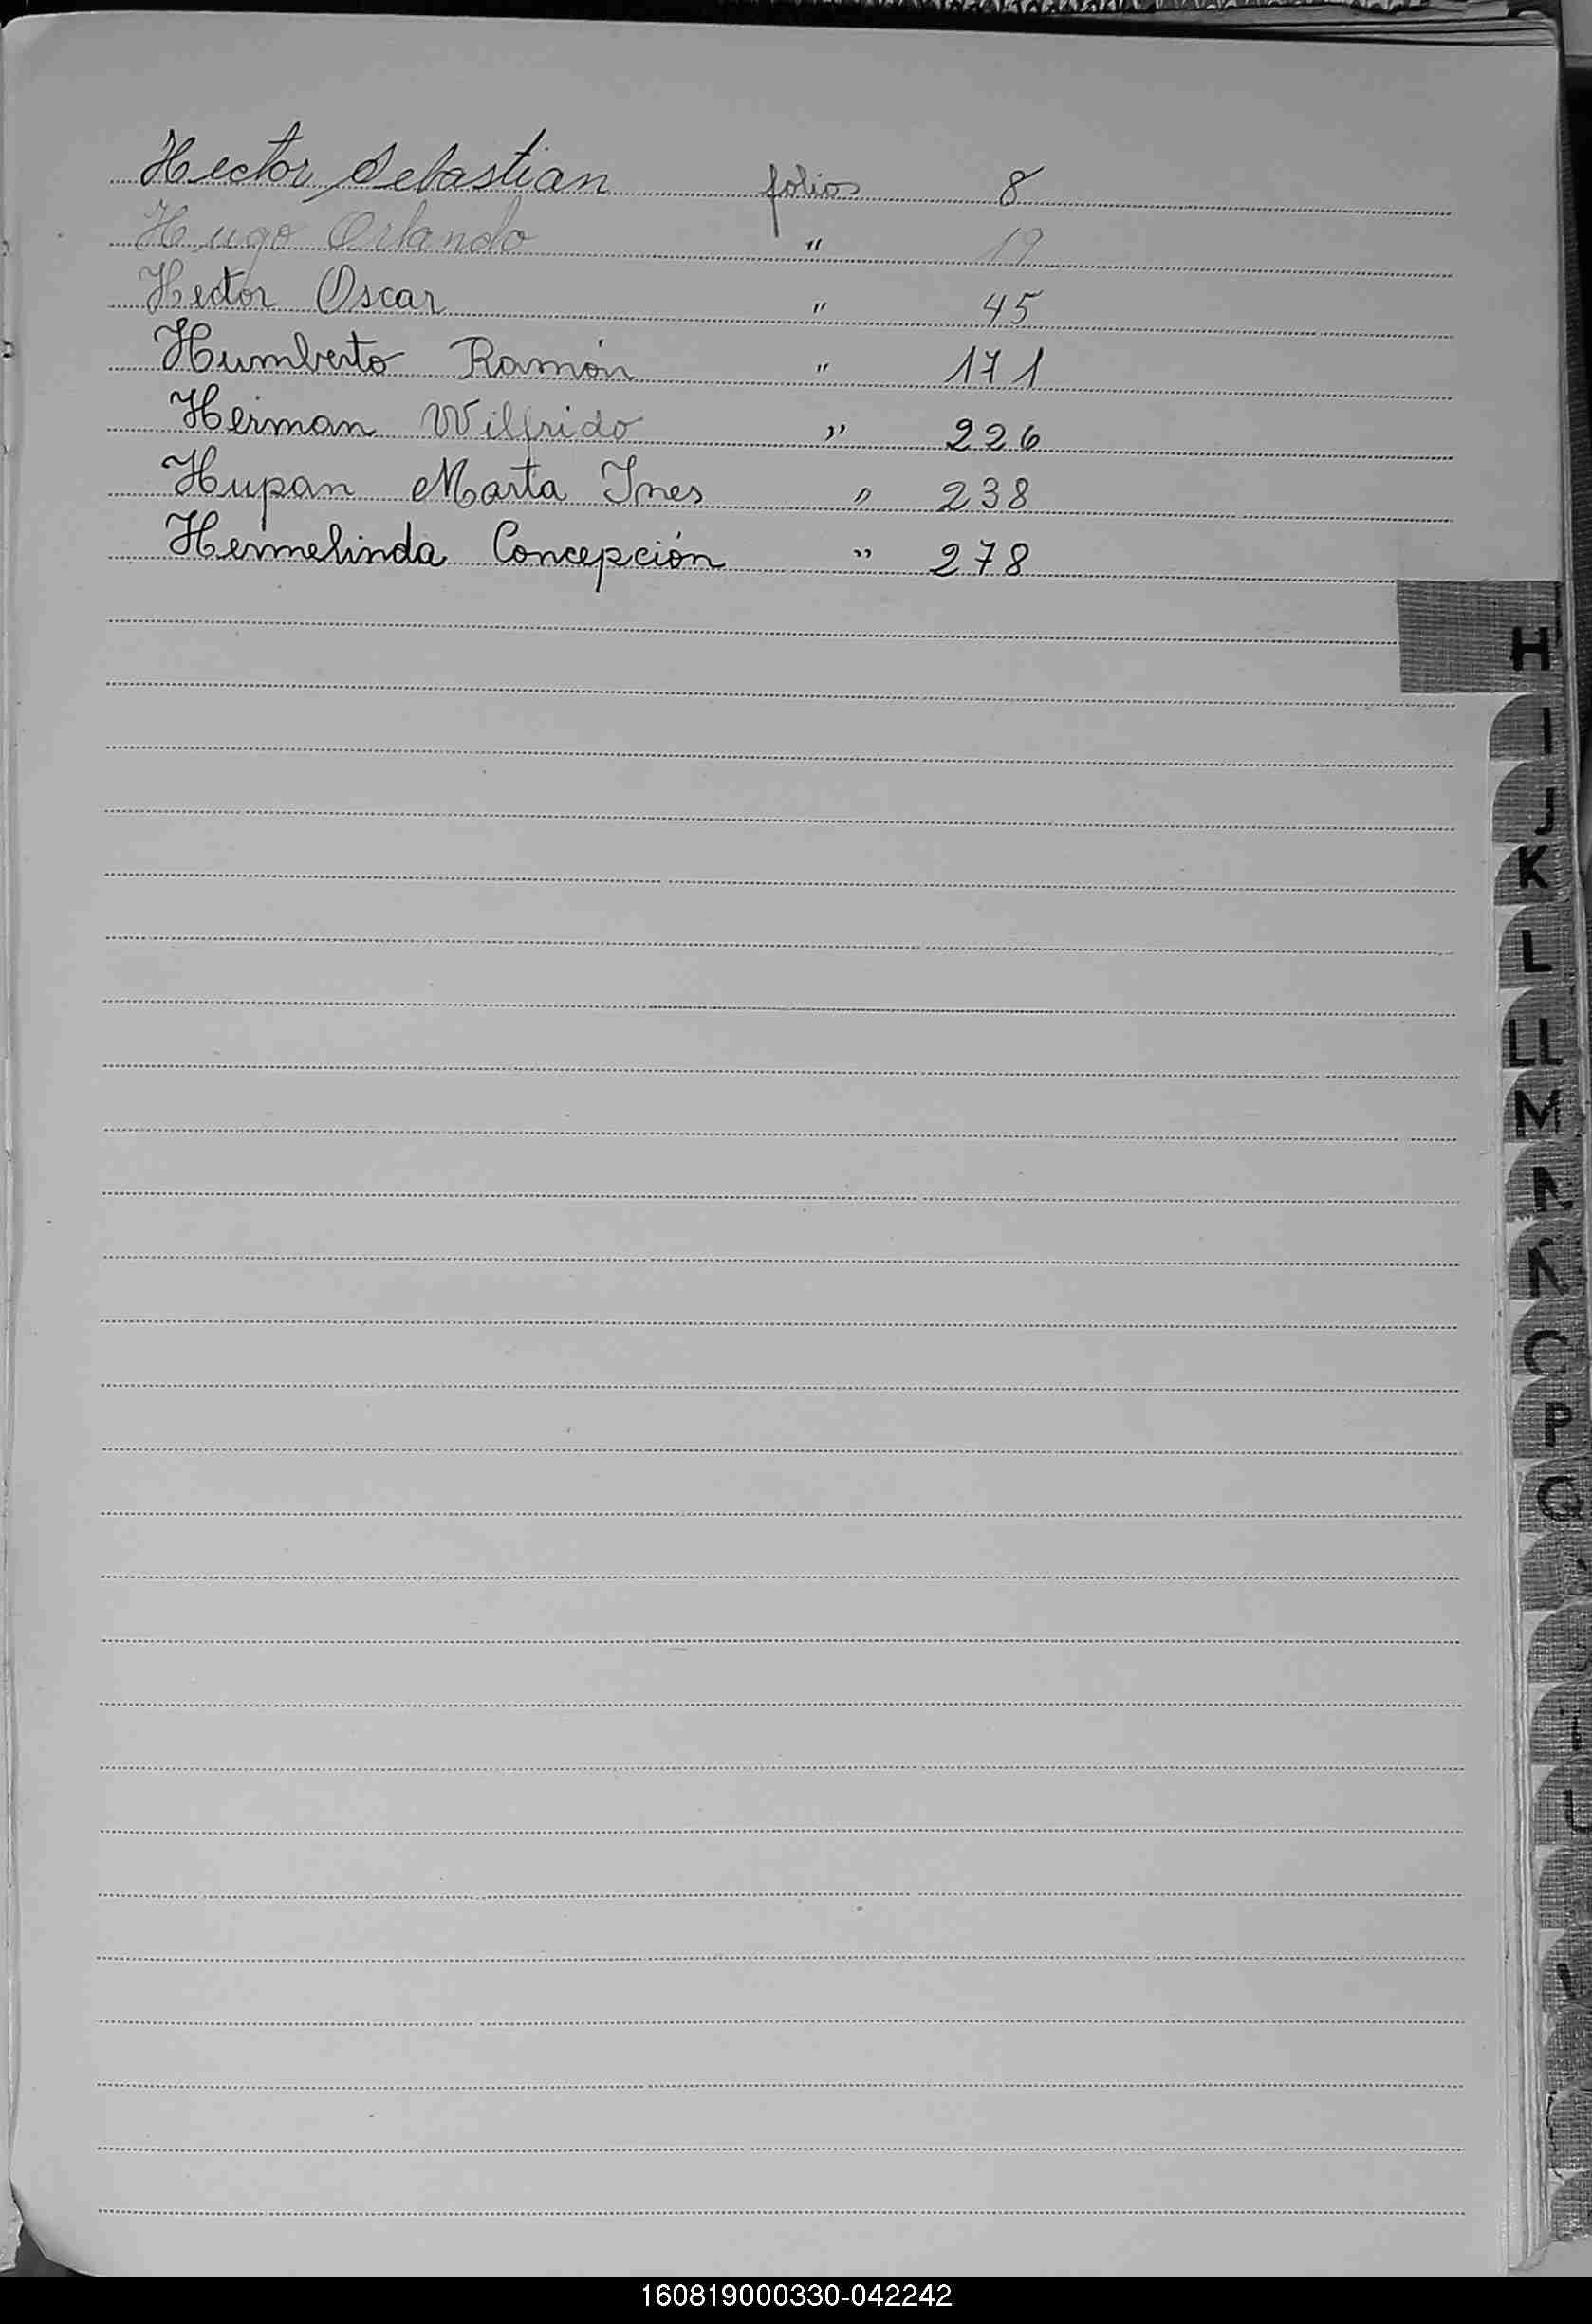 Hector Sebastian folios 8
Hugo Orlando " 19
Hector Oscar " 45
Humberto Ramón " 171
Herman Wilfrido " 226
Hupan Marta Ines " 238
Hermelinda Concepción " 278
H
I
J
K
L
LL
M
P
Q
160819000330-042242